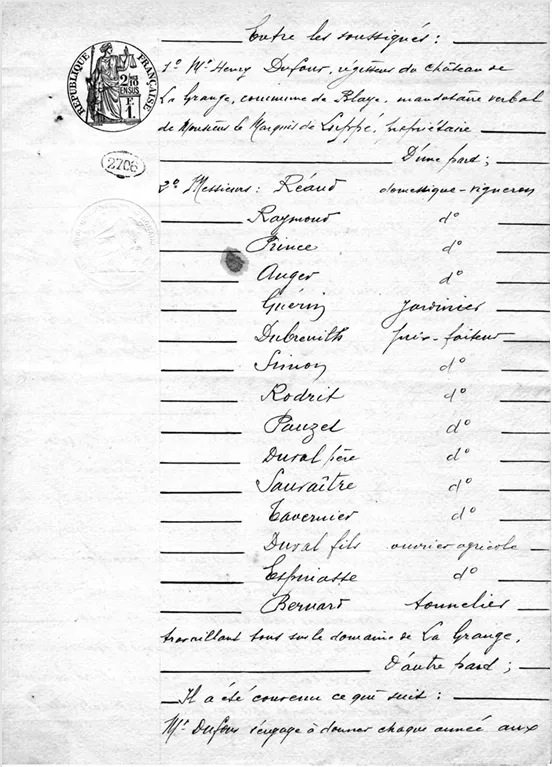 Entre les soussignés :
RÉPUBLIQUE FRANÇAISE
2/10 EN SUS
F
1.
1º Mr Henry Dufour, régisseur du château de
La Grange, commune de Blaye, mandataire verbal
de Monsieur le Marquis de Luppé, propriétaire
D'une part ;
2706
2º Messieurs : Réaud domestique-vigneron
Raymond dº
Prince dº
Auger dº
Guérin Jardinier
Dubreuilh prix-faiteur
Simon dº
Rodrit dº
Pauzet dº
Duval père dº
Sauvaître dº
Tavernier dº
Duval fils ouvrier agricole
Espinasse dº
Bernard tonnelier
travaillant tous sur le domaine de La Grange,
D'autre part ;
Il a été convenu ce qui suit :
Mr Dufour s'engage à donner chaque année aux